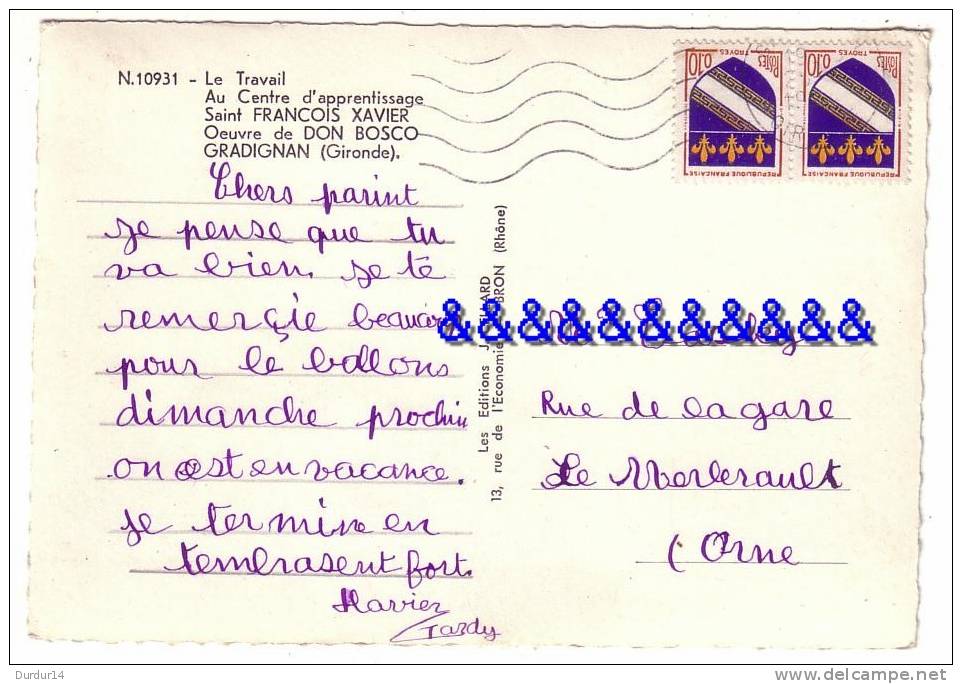 N.10931 - Le Travail
Au Centre d'apprentissage
Saint FRANCOIS XAVIER
Oeuvre de DON BOSCO
GRADIGNAN (Gironde).
Chers parint
je pense que tu
va bien. je te
remerçie beaucou
pour le ballons
dimanche prochin
on est en vacance.
je termine en
tembrasent fort.
Xavier
Tardy
Les Editions J
ARD
13, rue de l'Economie
BRON (Rhône)
POSTES
0.10
TROYES
REPUBLIQUE FRANCAISE
POSTES
0.10
TROYES
REPUBLIQUE FRANCAISE
&&&&&&&&&&&
Rue de la gare
Le Merlerault
(Orne
Durdur14
www.delcampe.net